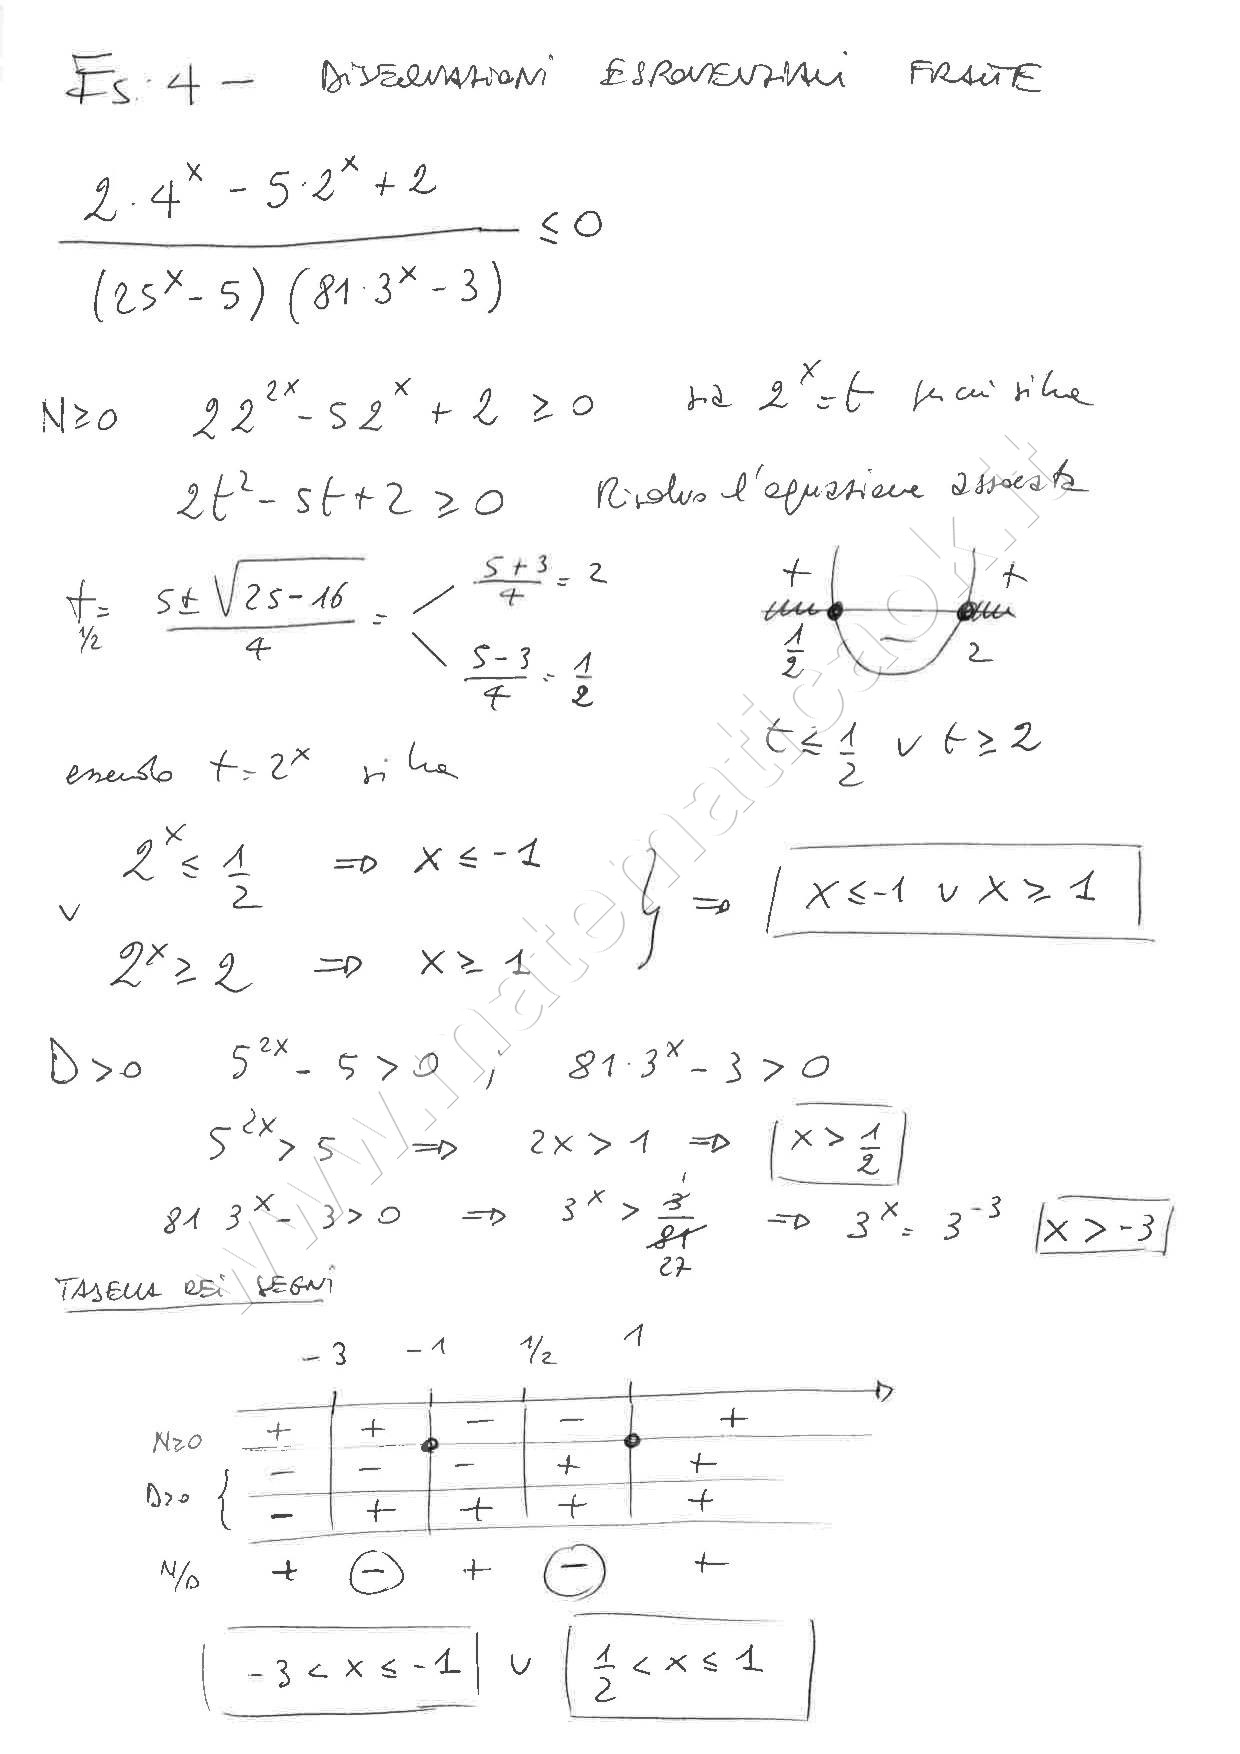 Es. 4 - DISEQUAZIONI ESPONENZIALI FRATTE
(2·4^x - 5·2^x + 2) / ((25^x - 5)(81·3^x - 3)) ≤ 0
N≥0 2 2^{2x} - 5 2^x + 2 ≥ 0 sia 2^x = t per cui si ha
2t² - 5t + 2 ≥ 0 Risolvo l'equazione associata
t_{1/2} = (5 ± √(25-16)) / 4 = (5+3)/4 = 2
(5-3)/4 = 1/2
+ - +
1/2 2
t ≤ 1/2 ∨ t ≥ 2
essendo t = 2^x si ha
2^x ≤ 1/2 ⇒ x ≤ -1
∨ } ⇒ x ≤ -1 ∨ x ≥ 1
2^x ≥ 2 ⇒ x ≥ 1
D>0 5^{2x} - 5 > 0 ; 81·3^x - 3 > 0
5^{2x} > 5 ⇒ 2x > 1 ⇒ x > 1/2
81 3^x - 3 > 0 ⇒ 3^x > 3/81 1 27 ⇒ 3^x = 3^{-3} x > -3
TABELLA DEI SEGNI
-3 -1 1/2 1
N≥0 + + - - +
D>0 { - - - + +
- + + + +
N/D + - + - +
-3 < x ≤ -1 ∨ 1/2 < x ≤ 1
www.matematicaok.it